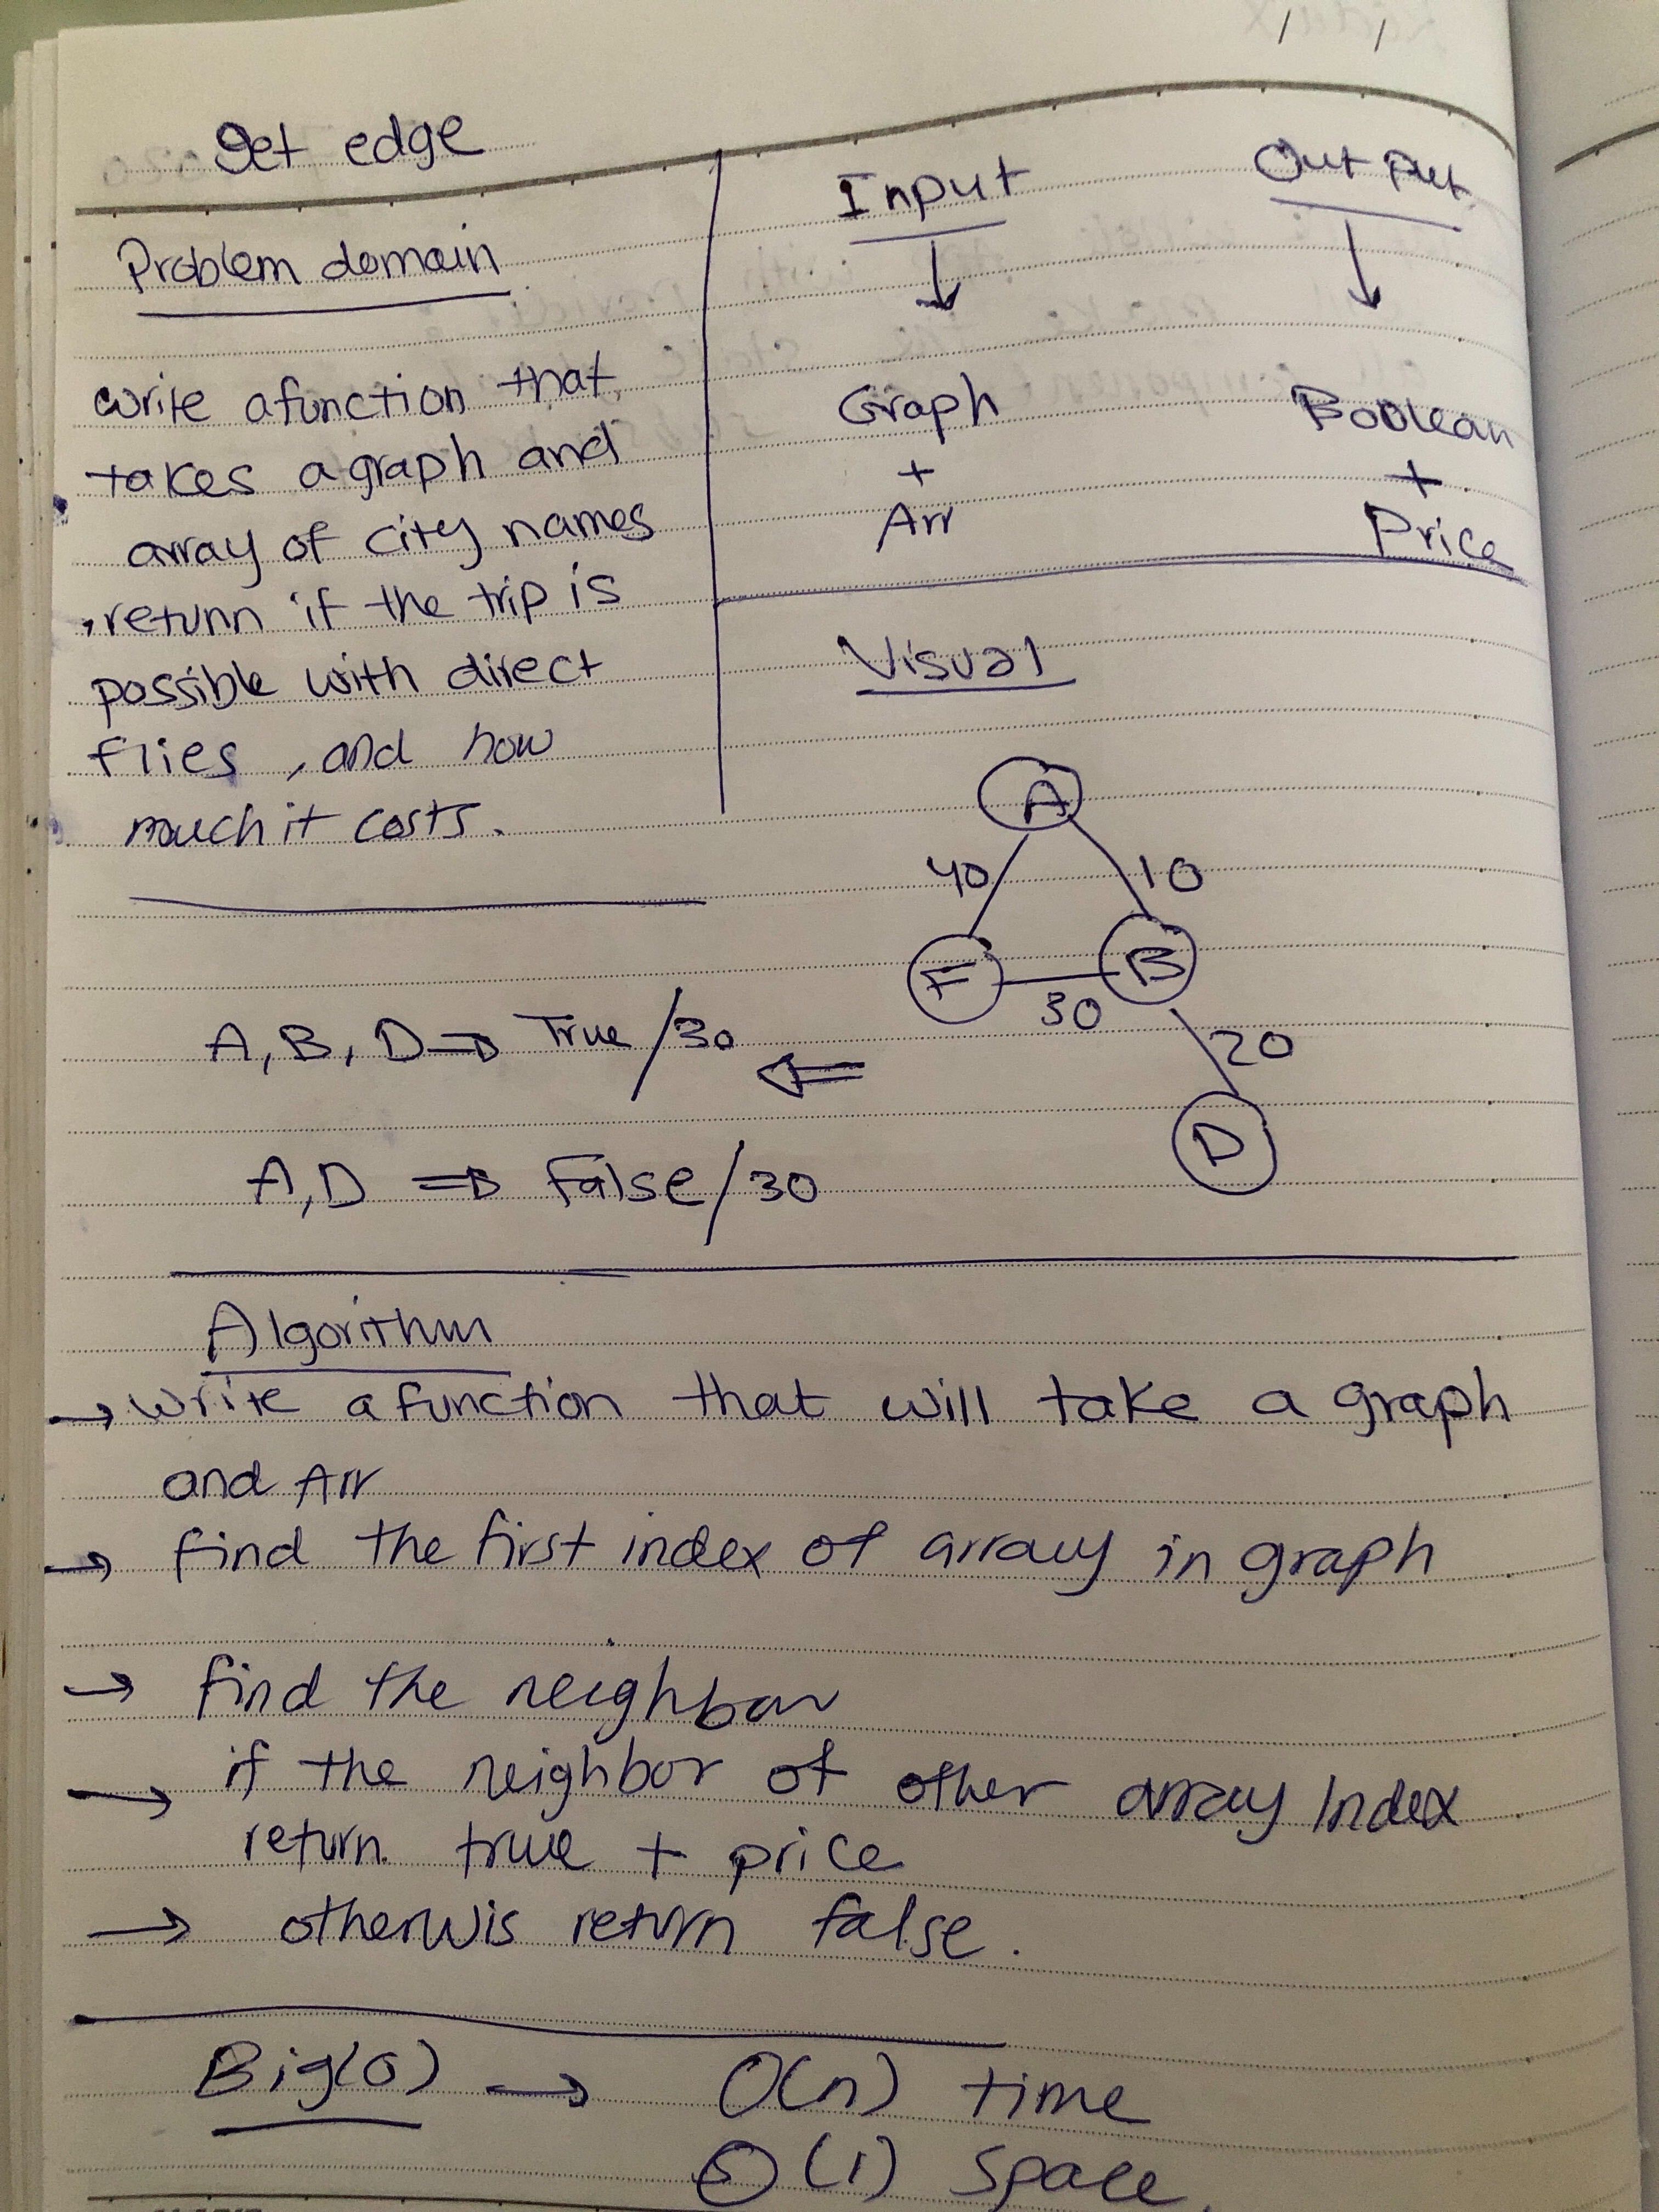 get edge
Problem domain
write a function that
takes a graph and
array of city names
, retunn if the trip is
possible with direct
flies , and how
much it costs.
Input
Graph
+
Arr
Out Put
Boolean
+
Price
Visual
A
40
10
F
B
30
20
D
A, B, D → True / 30
⇐
A, D ⇒ False / 30
Algorithm
→ write a function that will take a graph
and Arr
→ find the first index of array in graph
→ find the neighbor
→ if the neighbor of other array Index
return true + price
→ otherwis return false.
Big(O) → O(n) time
O(1) space.